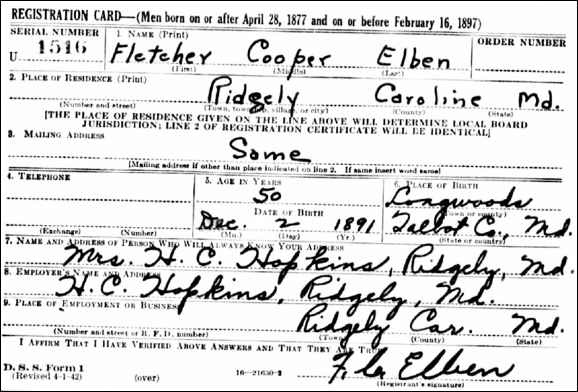 REGISTRATION CARD—(Men born on or after April 28, 1877 and on or before February 16, 1897)
SERIAL NUMBER 1. NAME (Print) ORDER NUMBER
U 1516 Fletcher Cooper Elben
(First) (Middle) (Last)
2. PLACE OF RESIDENCE (Print)
Ridgely Caroline Md.
(Number and street) (Town, township, village, or city) (County) (State)
[THE PLACE OF RESIDENCE GIVEN ON THE LINE ABOVE WILL DETERMINE LOCAL BOARD
JURISDICTION; LINE 2 OF REGISTRATION CERTIFICATE WILL BE IDENTICAL]
3. MAILING ADDRESS
Same
[Mailing address if other than place indicated on line 2. If same insert word same]
4. TELEPHONE 5. AGE IN YEARS 6. PLACE OF BIRTH
50 Longwoods
DATE OF BIRTH (Town or county)
Dec. 2 1891 Talbot Co., Md.
(Exchange) (Number) (Mo.) (Day) (Yr.) (State or country)
7. NAME AND ADDRESS OF PERSON WHO WILL ALWAYS KNOW YOUR ADDRESS
Mrs. H. C. Hopkins, Ridgely, Md.
8. EMPLOYER'S NAME AND ADDRESS
H. C. Hopkins, Ridgely, Md.
9. PLACE OF EMPLOYMENT OR BUSINESS
Ridgely Car. Md.
(Number and street or R. F. D. number) (Town) (County) (State)
I AFFIRM THAT I HAVE VERIFIED ABOVE ANSWERS AND THAT THEY ARE TRUE.
D. S. S. Form 1
(Revised 4-1-42) (over) 16—21630-2 Elben
(Registrant's signature)